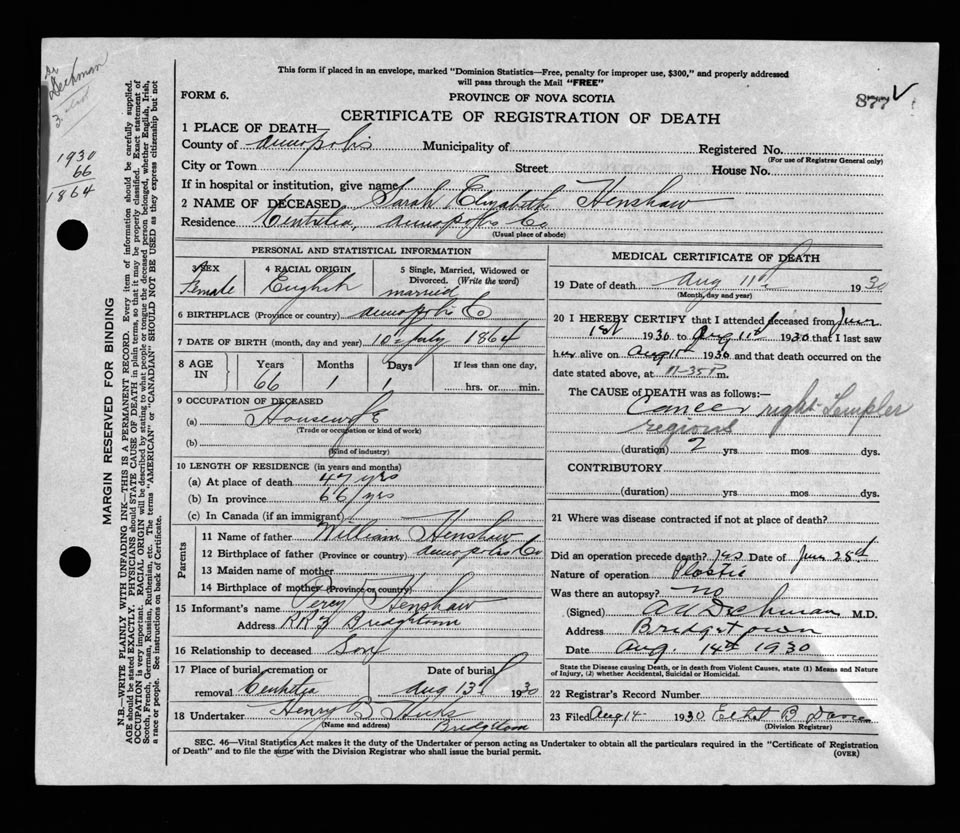 This form if placed in an envelope, marked "Dominion Statistics—Free, penalty for improper use, $300," and properly addressed
will pass through the Mail "FREE"
FORM 6.
PROVINCE OF NOVA SCOTIA
877
CERTIFICATE OF REGISTRATION OF DEATH
1 PLACE OF DEATH—
County of Annapolis Municipality of Registered No.
(For use of Registrar General only)
City or Town Street House No.
If in hospital or institution, give name
2 NAME OF DECEASED Sarah Elizabeth Henshaw
Residence Centrelea, Annapolis Co
(Usual place of abode)
PERSONAL AND STATISTICAL INFORMATION
3 SEX 4 RACIAL ORIGIN 5 Single, Married, Widowed or
Divorced. (Write the word)
Female English married
6 BIRTHPLACE (Province or country) Annapolis Co
7 DATE OF BIRTH (month, day and year) 10th July 1864
8 AGE IN Years Months Days If less than one day,
66 1 1 hrs. or min.
9 OCCUPATION OF DECEASED
(a) Housewife
(Trade or occupation or kind of work)
(b)
(Kind of industry)
10 LENGTH OF RESIDENCE (in years and months)
(a) At place of death 47 yrs
(b) In province 66 yrs
(c) In Canada (if an immigrant)
Parents
11 Name of father William Henshaw
12 Birthplace of father (Province or country) Annapolis Co
13 Maiden name of mother
14 Birthplace of mother (Province or country)
15 Informant's name Percy Henshaw
Address RR Bridgetown
16 Relationship to deceased Son
17 Place of burial, cremation or Date of burial
removal Centrelea Aug 13 1930
18 Undertaker Henry B Hicks
(Name and address) Bridgetown
MEDICAL CERTIFICATE OF DEATH
19 Date of death Aug 11th 1930
(Month, day and year)
20 I HEREBY CERTIFY that I attended deceased from June
1st 1930 to Aug 11th 1930 that I last saw
her alive on Aug 11th 1930 and that death occurred on the
date stated above, at 11-35 P m.
The CAUSE OF DEATH was as follows:—
Cancer right Templer
regions
(duration) 2 yrs mos dys.
CONTRIBUTORY
(duration) yrs mos dys.
21 Where was disease contracted if not at place of death?
Did an operation precede death? yes Date of June 28th
Nature of operation Plastic
Was there an autopsy? no
(Signed) A A Dechman M.D.
Address Bridgetown
Date Aug. 14th 1930
State the Disease causing Death, or in death from Violent Causes, state (1) Means and Nature
of Injury, (2) whether Accidental, Suicidal or Homicidal.
22 Registrar's Record Number
23 Filed Aug 14 1930
(Division Registrar)
SEC. 46—Vital Statistics Act makes it the duty of the Undertaker or person acting as Undertaker to obtain all the particulars required in the "Certificate of Registration
of Death" and to file the same with the Division Registrar who shall issue the burial permit.
(OVER)
Dr Dechman
1930
66
1864
MARGIN RESERVED FOR BINDING
N.B.—WRITE PLAINLY WITH UNFADING INK—THIS IS A PERMANENT RECORD. Every item of information should be carefully supplied.
AGE should be stated EXACTLY. PHYSICIANS should STATE CAUSE OF DEATH in plain terms, so that it may be properly classified. Exact statement of
OCCUPATION is very important. RACIAL ORIGIN will be described by stating to what people or tongue the deceased person belonged, whether English, Irish,
Scotch, French, German, Russian, Ruthenian, etc. The terms "AMERICAN" or "CANADIAN" SHOULD NOT BE USED as they express citizenship but not
a race or people. See instructions on back of Certificate.